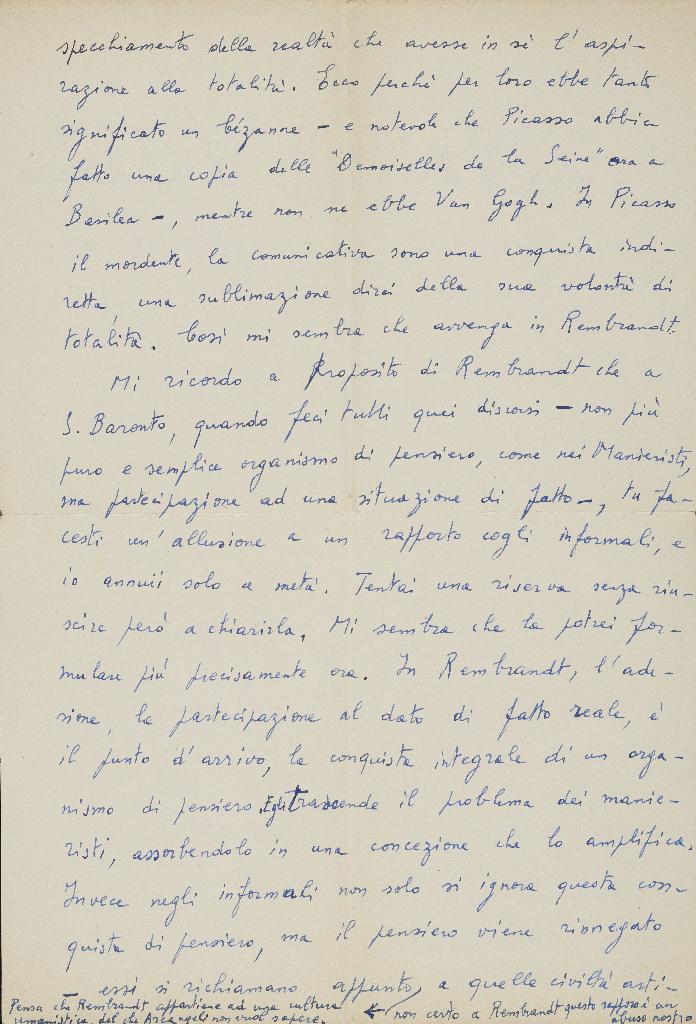 specchiamento della realtà che avesse in sè l'aspi-
razione alla totalità. Ecco perché per loro ebbe tanto
significato un Cézanne – e notevole che Picasso abbia
fatto una copia delle "Demoiselles de la Seine" ora a
Basilea –, mentre non ne ebbe Van Gogh. In Picasso
il mordente, la comunicativa sono una conquista indi-
retta, una sublimazione direi della sua volontà di
totalità. Così mi sembra che avvenga in Rembrandt.
Mi ricordo a proposito di Rembrandt che a
S. Baronto, quando feci tutti quei discorsi – non più
puro e semplice organismo di pensiero, come nei Manieristi,
ma partecipazione ad una situazione di fatto –, tu fa-
cesti un'allusione a un rapporto cogli informali, e
io annuii solo a metà. Tentai una riserva senza riu-
scire però a chiarirla. Mi sembra che la potrei for-
mulare più precisamente ora. In Rembrandt, l'ade-
sione, la partecipazione al dato di fatto reale, è
il punto d'arrivo, la conquista integrale di un orga-
nismo di pensiero. Egli trascende il problema dei manie-
risti, assorbendolo in una concezione che lo amplifica.
Invece negli informali non solo si ignora questa con-
quista di pensiero, ma il pensiero viene rinnegato
– essi si richiamano appunto, a quelle civiltà arti-
Pensa che Rembrandt appartiene ad una cultura ← non certo a Rembrandt questo rapporto è un
umanistica, del che Arcangeli non vuol sapere. abuso nostro